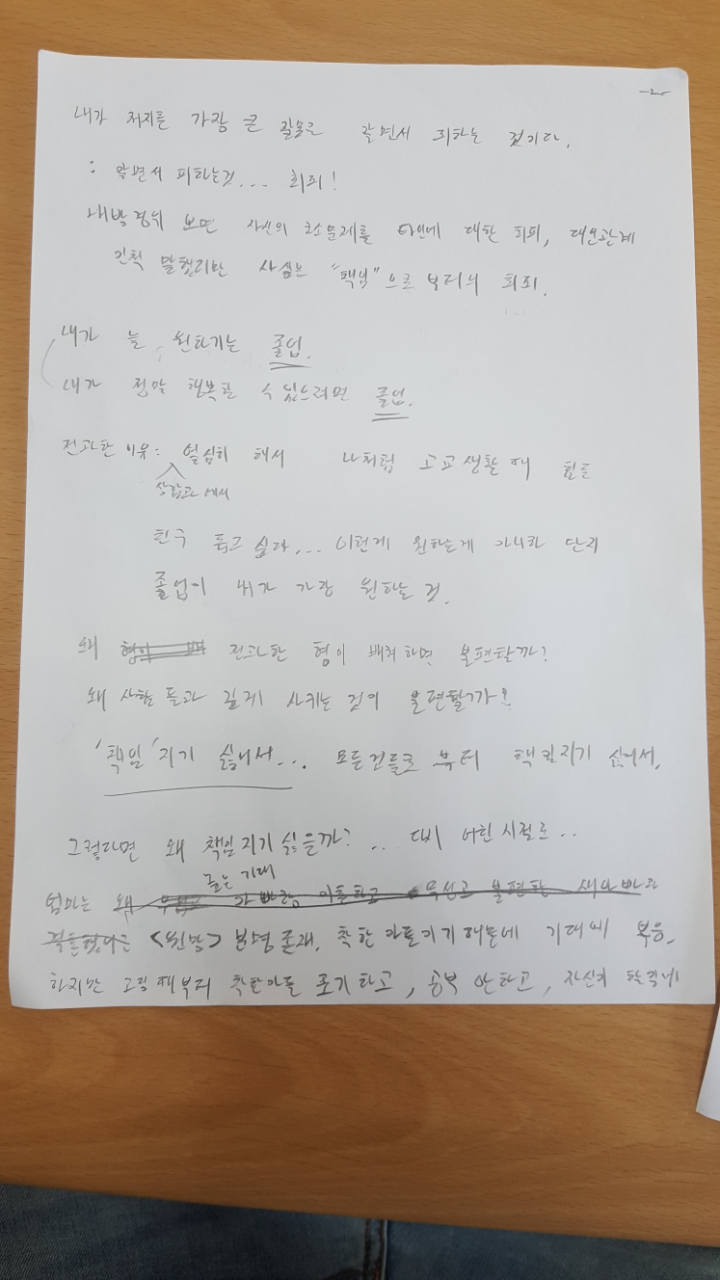 -2-
내가 저지른 가장 큰 잘못은 알면서 피하는 것이다.
: 알면서 피하는것... 회피!
보면 자신의 문제를 타인에 대한 회피, 대인관계
사실은 "책임"으로 부터의 회피.
내가 늘 원하기는 졸업.
내가 정말 행복할 수 있으려면 졸업.
전과한 이유: 열심히 해서 나처럼 고교생활 때 힘든
상담과에서
친구 돕고 싶다... 이런게 원하는게 아니라 단지
졸업이 내가 가장 원하는 것.
왜 전과한 형이 배척하면 불편할까?
왜 사람들과 깊게 사귀는 것이 불편할까?
'책임'지기 싫어서... 모든것들로 부터 책임지기 싫어서.
그렇다면 왜 책임지기 싫을까? .. 다시 어린시절로..
엄마는
<원망> 분명 존재. 착한 아들이기 때문에 기대에 부응.
하지만 고딩때부터 착한아들 포기하고, 공부 안하고, 자신의